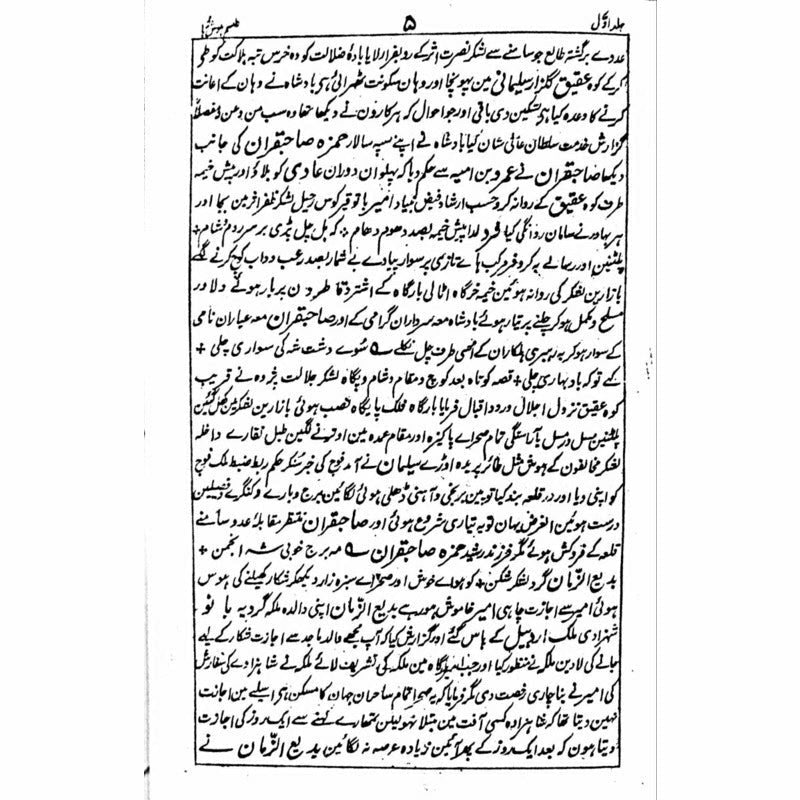 جلد اول
۵
طلسم ہوش ربا
عدوے برگشتہ طالع جو سامنے سے لشکر نصرت اثر کے رو بفرار لایا بادۂ ضلالت کو وہ خرس تبہ ہلاکت کو طی
کر کے کوہ عقیق گلزار سلیمانی مین پہونچا اور وہان سکونت ٹھہرائی ہی بادشاہ نے وہان کے اعانت
کرنے کا وعدہ کیا ہی تسکین دی باقی اور جو احوال کہ ہرکارون نے دیکھا تھا وہ سب من و عن و مفصلاً
گزارش خدمت سلطان عالی شان کیا بادشاہ نے اپنے سپہ سالار حمزہ صاحبقران کی جانب
دیکھا صاحبقران نے عمرو بن امیہ سے حکم دیا کہ پہلوان دوران عادی کو بلاؤ اور پیش خیمہ
طرف کوہ عقیق کے روانہ کرو حسب ارشاد فیض بنیاد امیر با توقیر کوس رحیل لشکر ظفر اثر مین بجا اور
ہر بہادر نے سامان روانگی کیا فرد لدا پیش خیمہ بصد دھوم دھام ؞ کہ ہل چل پڑی ہر سر روم و شام +
پلٹنین اور رسالے پر کروفر مرکب ہاے تازی پر سوار پیادے بے شمار بصد رعب و داب کوچ کرنے لگے
بازارین لشکر کی روانہ ہوئین خیمہ خرگاہ اثالی بارگاہ کے اشتر و قاطرون پر بار ہوئے دلاور
مسلح و مکمل ہو کر چلنے پر تیار ہوئے بادشاہ معہ سرداران گرامی کے اور صاحبقران معہ عیاران نامی
کے سوار ہو کر بہ رہبری ہلکاران کے اُسی طرف چل نکلے ؎ سوے دشت شہ کی سواری چلی +
کہے تو کہ باد بہاری چلی + قصہ کوتاہ بعد کوچ و مقام و شام و پگاہ لشکر جلالت پژدہ نے قریب
کوہ عقیق نزول اجلال ورود اقبال فرمایا بارگاہ فلک پایگاہ نصب ہوئی بازارین لشکر مین کھل گئین
پلٹنین مسل در مسل بآراستگی تمام صحراے پاکیزہ اور مقام عمدہ مین اوترنے لگین طبل نقارے داخلہ
لشکر مخالفون کے ہوش مثل طائر پریدہ اوڑے سلیمان نے آمد فوج کی خبر سنکر حکم ربط ضبط ملک فوج
کو اپنی دیا اور در قلعہ بند کیا توپین برنجی و آہنی ڈھلی ہوئی لگائین برج و بارے و کنگرے و فصیلین
درست ہوئین الغرض یہان تو یہ تیاری شروع ہوئی اور صاحبقران منتظر مقابلۂ عدو سامنے
قلعہ کے فروکش ہوئے مگر فرزند رشید حمزہ صاحبقران ؎ مہ برج خوبی شہ انجمن +
بدیع الزمان گرد لشکر شکن + کو ہواے خوش اور صحراے سبزہ زار دیکھکر شکار کھیلنے کی ہوس
ہوئی امیر سے اجازت چاہی امیر خاموش ہو رہے بدیع الزمان اپنی والدہ ملکہ گردیہ بانو
شہزادی ملک اردبیل کے پاس گئے اور گزارش کیا کہ آپ مجھے والد ماجد سے اجازت شکار کے لیے
جانے کی لا دین ملکہ نے منظور کیا اور جب امیر بارگاہ مین ملکہ کی تشریف لائے ملکہ نے شاہزادے کی سفارش
کی امیر نے بناچاری رخصت دی مگر فرمایا کہ یہ صحرا تمام ساحران جہان کا مسکن ہی اسیلیے مین اجازت
نہین دیتا تھا کہ شاہزادہ کسی آفت مین مبتلا نہو لیکن تمھارے کہنے سے ایک روز کی اجازت
دیتا ہون کہ بعد ایک روز کے پھر آئین زیادہ عرصہ نہ لگائین بدیع الزمان نے